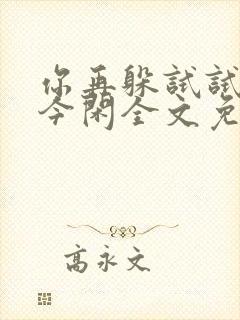 你再躲试试
今闲全文免
高永文